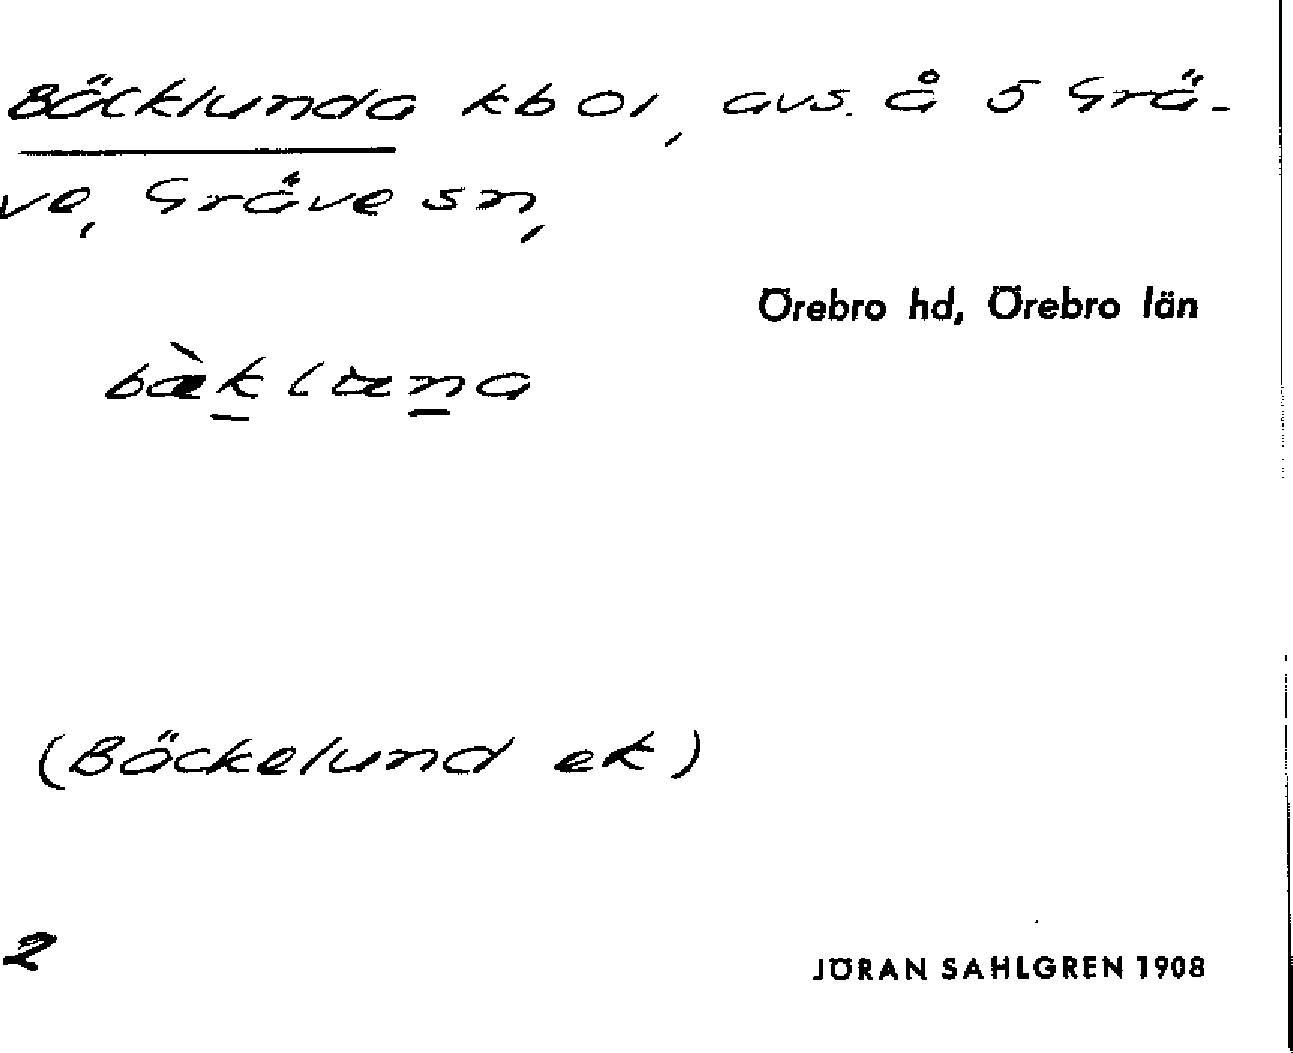 Bäcklunda kb 01, avs. å 5 Grä-
ve, Gräve sn,
Örebro hd, Örebro län
bæ̀klɯna
(Bäckelund ek)
2
JÖRAN SAHLGREN 1908